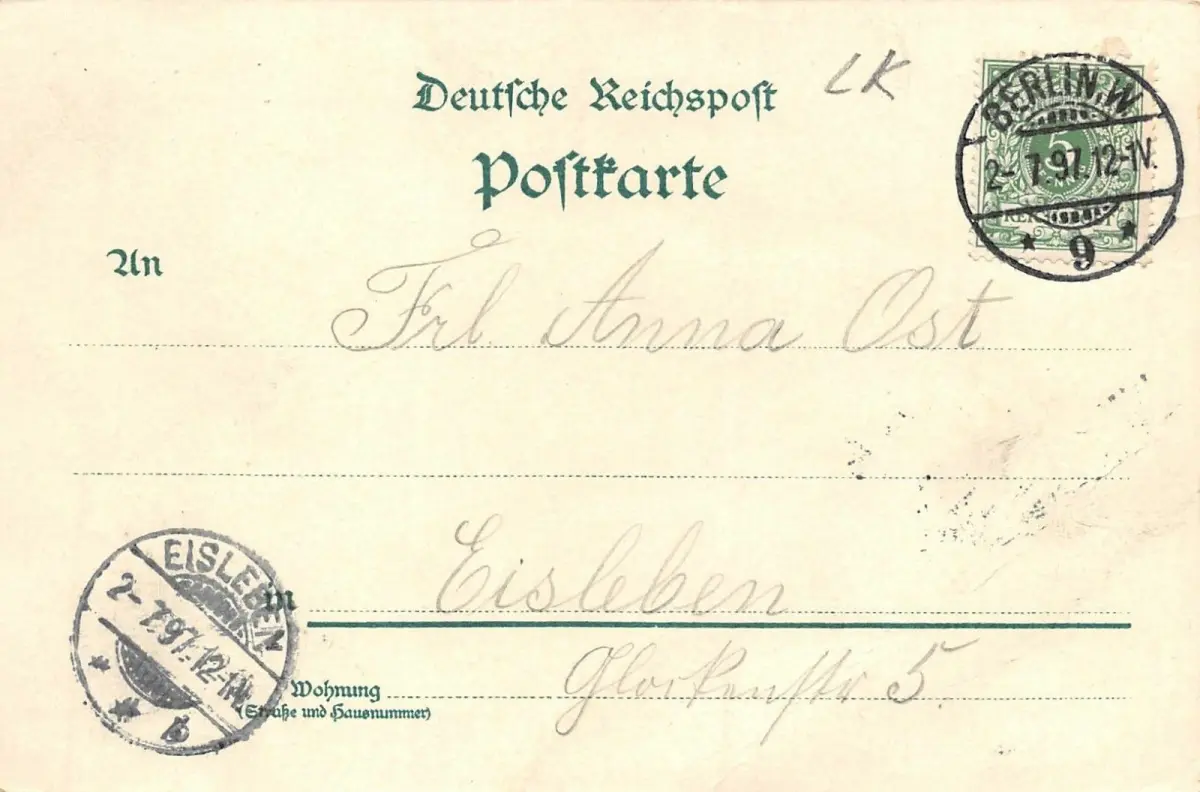 Deutsche Reichspost
LK
Postkarte
BERLIN, W
2- 7.97.12-1V.
* 9 *
5
An
Frl Anna Ost
in Eisleben
EISLEBEN
2- 7.97.12-1V.
* * b
Wohnung Glockenstr 5.
(Straße und Hausnummer)